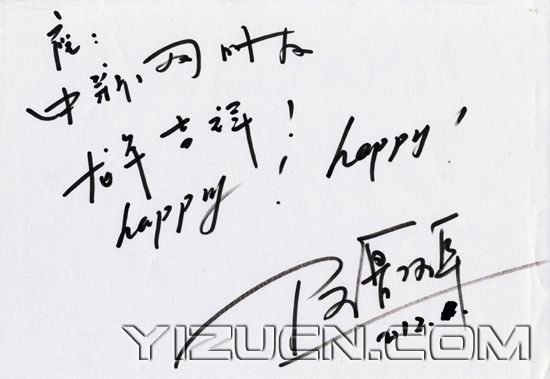 祝：
中新网网友
龙年吉祥！
happy！ happy！
2012.
YIZUCN.COM